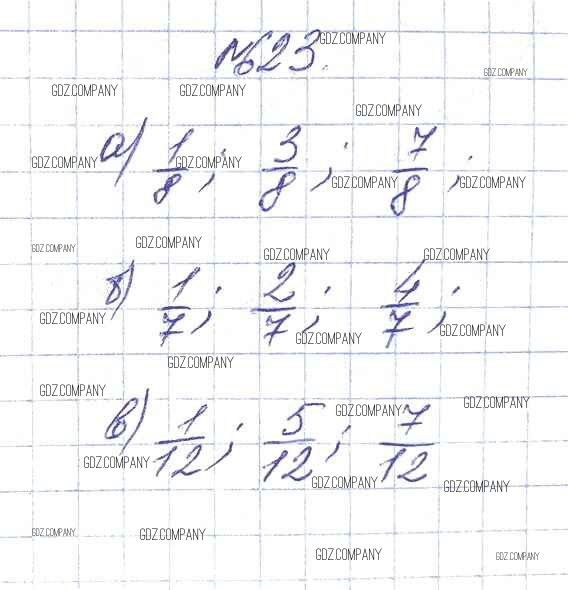 №623.
GDZ.COMPANY
GDZ.COMPANY
GDZ.COMPANY GDZ.COMPANY
GDZ.COMPANY
а) 1/8; 3/8; 7/8;
GDZ.COMPANY GDZ.COMPANY GDZ.COMPANY GDZ.COMPANY
GDZ.COMPANY GDZ.COMPANY GDZ.COMPANY GDZ.COMPANY
б) 1/7; 2/7; 4/7;
GDZ.COMPANY GDZ.COMPANY GDZ.COMPANY
GDZ.COMPANY
GDZ.COMPANY GDZ.COMPANY GDZ.COMPANY
в) 1/12; 5/12; 7/12
GDZ.COMPANY GDZ.COMPANY GDZ.COMPANY
GDZ.COMPANY GDZ.COMPANY GDZ.COMPANY GDZ.COMPANY